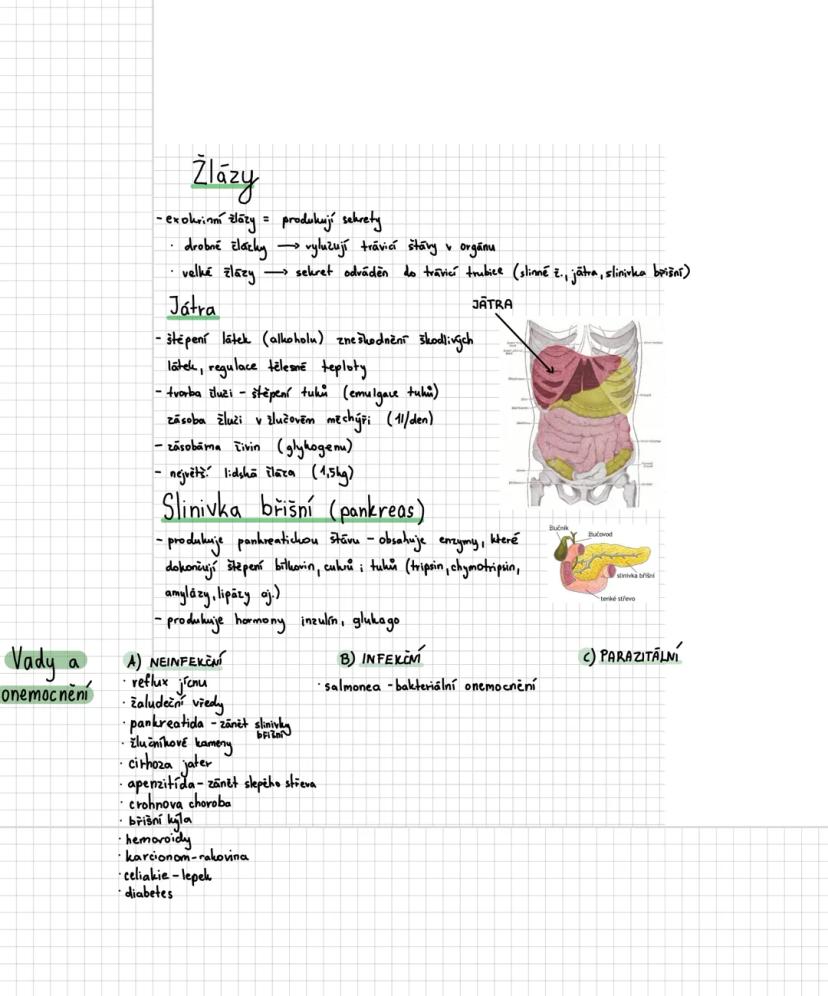 Žlázy
- exokrinní žlázy = produkují sekrety
· drobné žlázky → vylučují trávicí šťávy v orgánu
· velké žlázy → sekret odváděn do trávicí trubice (slinné ž., játra, slinivka břišní)
Játra
JÁTRA
- štěpení látek (alkoholu) zneškodnění škodlivých
látek, regulace tělesné teploty
- tvorba žluči - štěpení tuků (emulgace tuků)
zásoba žluči v žlučovém měchýři (1l/den)
- zásobárna živin (glykogenu)
- největší lidská žláza (1,5kg)
Slinivka břišní (pankreas)
- produkuje pankreatickou šťávu - obsahuje enzymy, které
dokončují štěpení bílkovin, cukrů i tuků (tripsin, chymotripsin,
amylázy, lipázy aj.)
- produkuje hormony inzulín, glukago
žlučník
žlučovod
slinivka břišní
tenké střevo
Vady a
onemocnění
A) NEINFEKČNÍ
· reflux jícnu
· žaludeční vředy
· pankreatida - zánět slinivky
břišní
· žlučníkové kameny
· cirhoza jater
· apenzitida - zánět slepého střeva
· crohnova choroba
· břišní kýla
· hemoroidy
· karcionom - rakovina
· celiakie - lepek
· diabetes
B) INFEKČNÍ
· salmonea - bakteriální onemocnění
C) PARAZITÁLNÍ